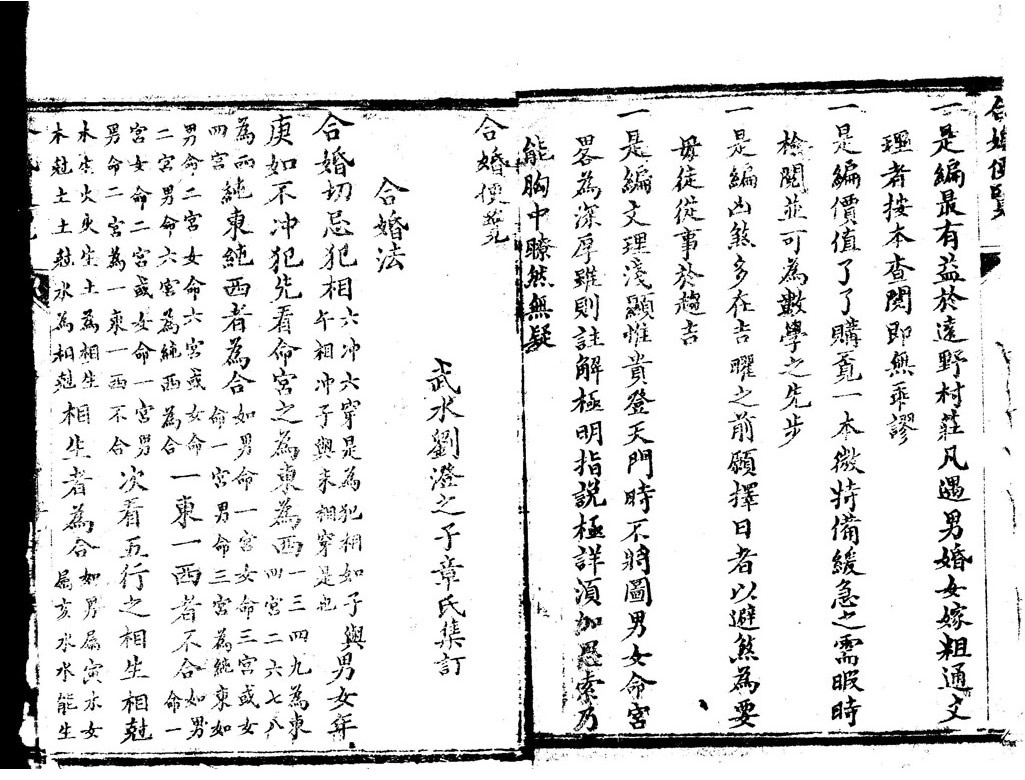 合婚便覽
一是編最有益於遠野村莊凡遇男婚女嫁粗通文
理者按本查閱即無乖謬
一是編價值了了購覓一本微特備緩急之需暇時
檢閱並可為數學之先步
一是編凶煞多在吉曜之前願擇日者以避煞為要
毋徒從事於趨吉
一是編文理淺顯惟貴登天門時不將圖男女命宮
畧為深厚雖則註解極明指說極詳須加思索乃
能胸中瞭然無疑
合婚便覽
武水劉澄之子章氏集訂
合婚法
合婚切忌犯相六冲六穿是為犯相如子與午相冲子與未相穿是也男女年
庚如不冲犯先看命宮之為東為西一三四九為東四宮二六七八
為西四宮純東純西者為合如男命一宮女命三宮或女命一宮男命三宮為純東如
男命二宮女命六宮或女命二宮男命六宮為純西為合一東一西者不合如男命一
宮女命二宮或女命一宮男男命二宮為一東一西不合次看五行之相生相尅
木生火火生土為相生木尅土土尅水為相尅相生者為合如男屬寅木女屬亥水水能生